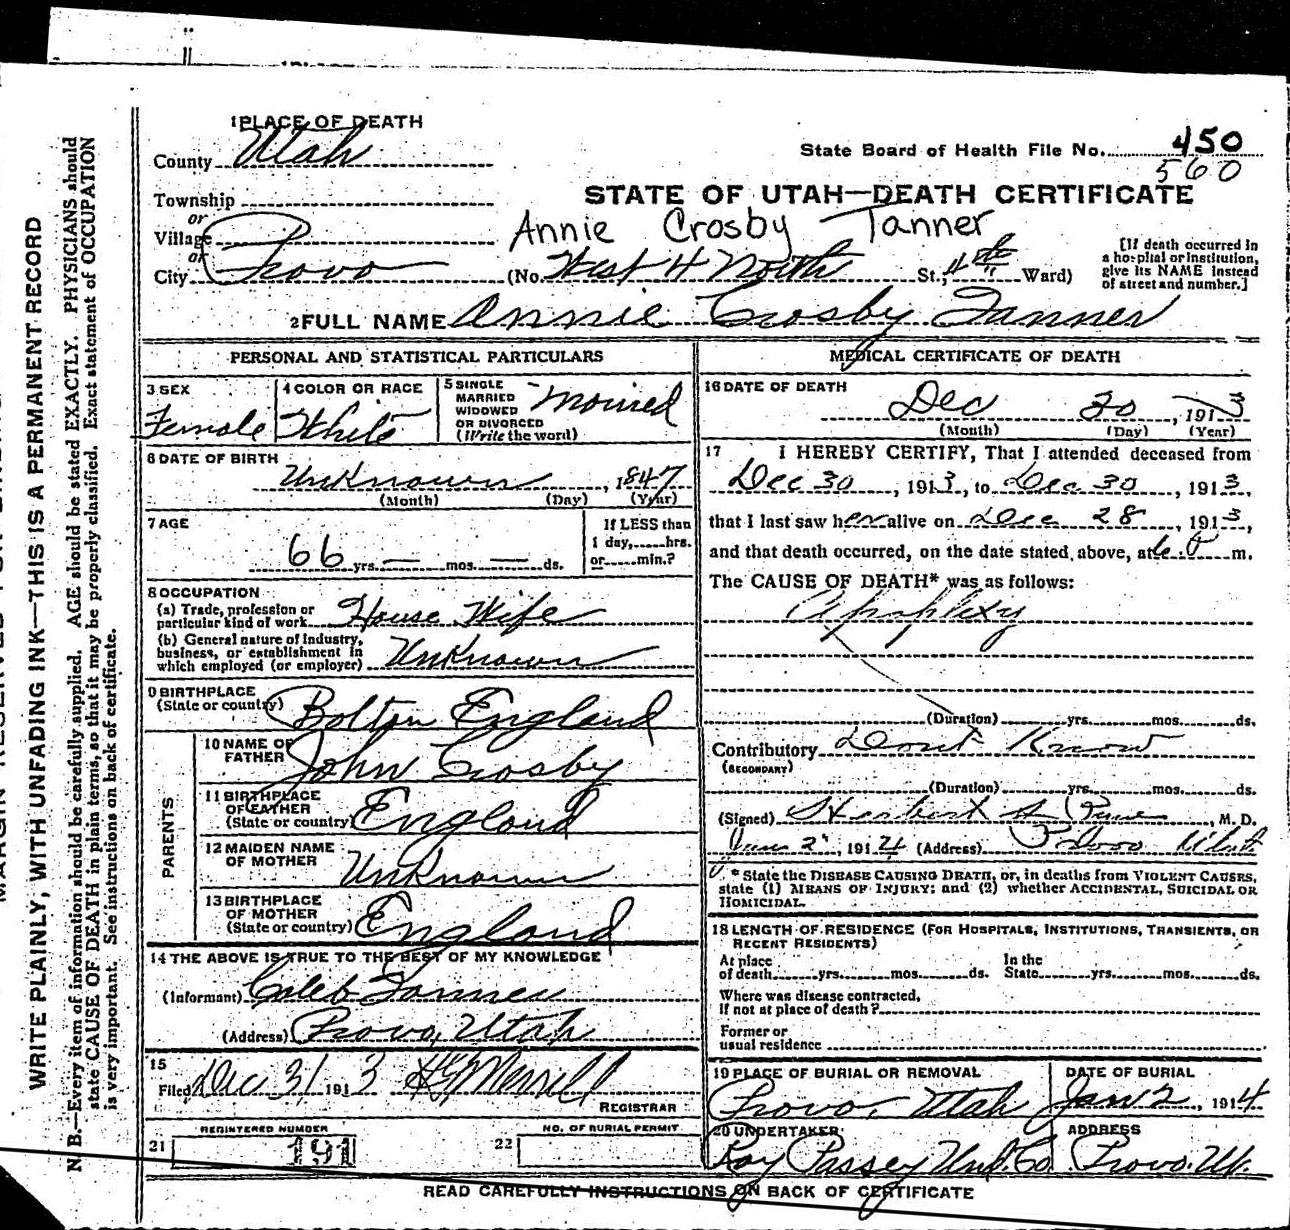 1 PLACE OF DEATH
County Utah
State Board of Health File No. 450
560
Township
or
Village
or
City Provo
STATE OF UTAH—DEATH CERTIFICATE
Annie Crosby Tanner
(No. West 4 North St.; 4th Ward)
[If death occurred in
a hospital or institution,
give its NAME instead
of street and number.]
2 FULL NAME Annie Crosby Tanner
PERSONAL AND STATISTICAL PARTICULARS
3 SEX
Female
4 COLOR OR RACE
White
5 SINGLE
MARRIED
WIDOWED
OR DIVORCED
(Write the word)
Married
6 DATE OF BIRTH
Unknown, 1847
(Month) (Day) (Year)
7 AGE
66 yrs. — mos. — ds.
If LESS than
1 day,......hrs.
or......min.?
8 OCCUPATION
(a) Trade, profession or
particular kind of work House Wife
(b) General nature of industry,
business, or establishment in
which employed (or employer) Unknown
9 BIRTHPLACE
(State or country) Bolton England
PARENTS
10 NAME OF
FATHER John Crosby
11 BIRTHPLACE
OF FATHER
(State or country) England
12 MAIDEN NAME
OF MOTHER Unknown
13 BIRTHPLACE
OF MOTHER
(State or country) England
14 THE ABOVE IS TRUE TO THE BEST OF MY KNOWLEDGE
(Informant) Caleb Tanner
(Address) Provo, Utah
15
Filed Dec 31 1913 Merrell
REGISTRAR
REGISTERED NUMBER
21 191
NO. OF BURIAL PERMIT
22
MEDICAL CERTIFICATE OF DEATH
16 DATE OF DEATH
Dec 30, 1913
(Month) (Day) (Year)
17 I HEREBY CERTIFY, That I attended deceased from
Dec 30, 1913, to Dec 30, 1913,
that I last saw her alive on Dec 28, 1913,
and that death occurred, on the date stated above, at m.
The CAUSE OF DEATH* was as follows:
Apoplexy
(Duration) yrs. mos. ds.
Contributory Dont Know
(SECONDARY)
(Duration) yrs. mos. ds.
(Signed) Herbert, M. D.
2, 1914 (Address) Provo Utah
* State the DISEASE CAUSING DEATH, or, in deaths from VIOLENT CAUSES,
state (1) MEANS OF INJURY; and (2) whether ACCIDENTAL, SUICIDAL OR
HOMICIDAL.
18 LENGTH OF RESIDENCE (FOR HOSPITALS, INSTITUTIONS, TRANSIENTS, OR
RECENT RESIDENTS)
At place
of death yrs. mos. ds.
In the
State yrs. mos. ds.
Where was disease contracted,
if not at place of death?
Former or
usual residence
19 PLACE OF BURIAL OR REMOVAL
Provo, Utah
DATE OF BURIAL
Jan 2, 1914
20 UNDERTAKER
Roy Passey Und. Co
ADDRESS
Provo. Ut.
READ CAREFULLY INSTRUCTIONS ON BACK OF CERTIFICATE
WRITE PLAINLY, WITH UNFADING INK—THIS IS A PERMANENT RECORD
N. B.—Every item of information should be carefully supplied. AGE should be stated EXACTLY. PHYSICIANS should
state CAUSE OF DEATH in plain terms, so that it may be properly classified. Exact statement of OCCUPATION
is very important. See instructions on back of certificate.